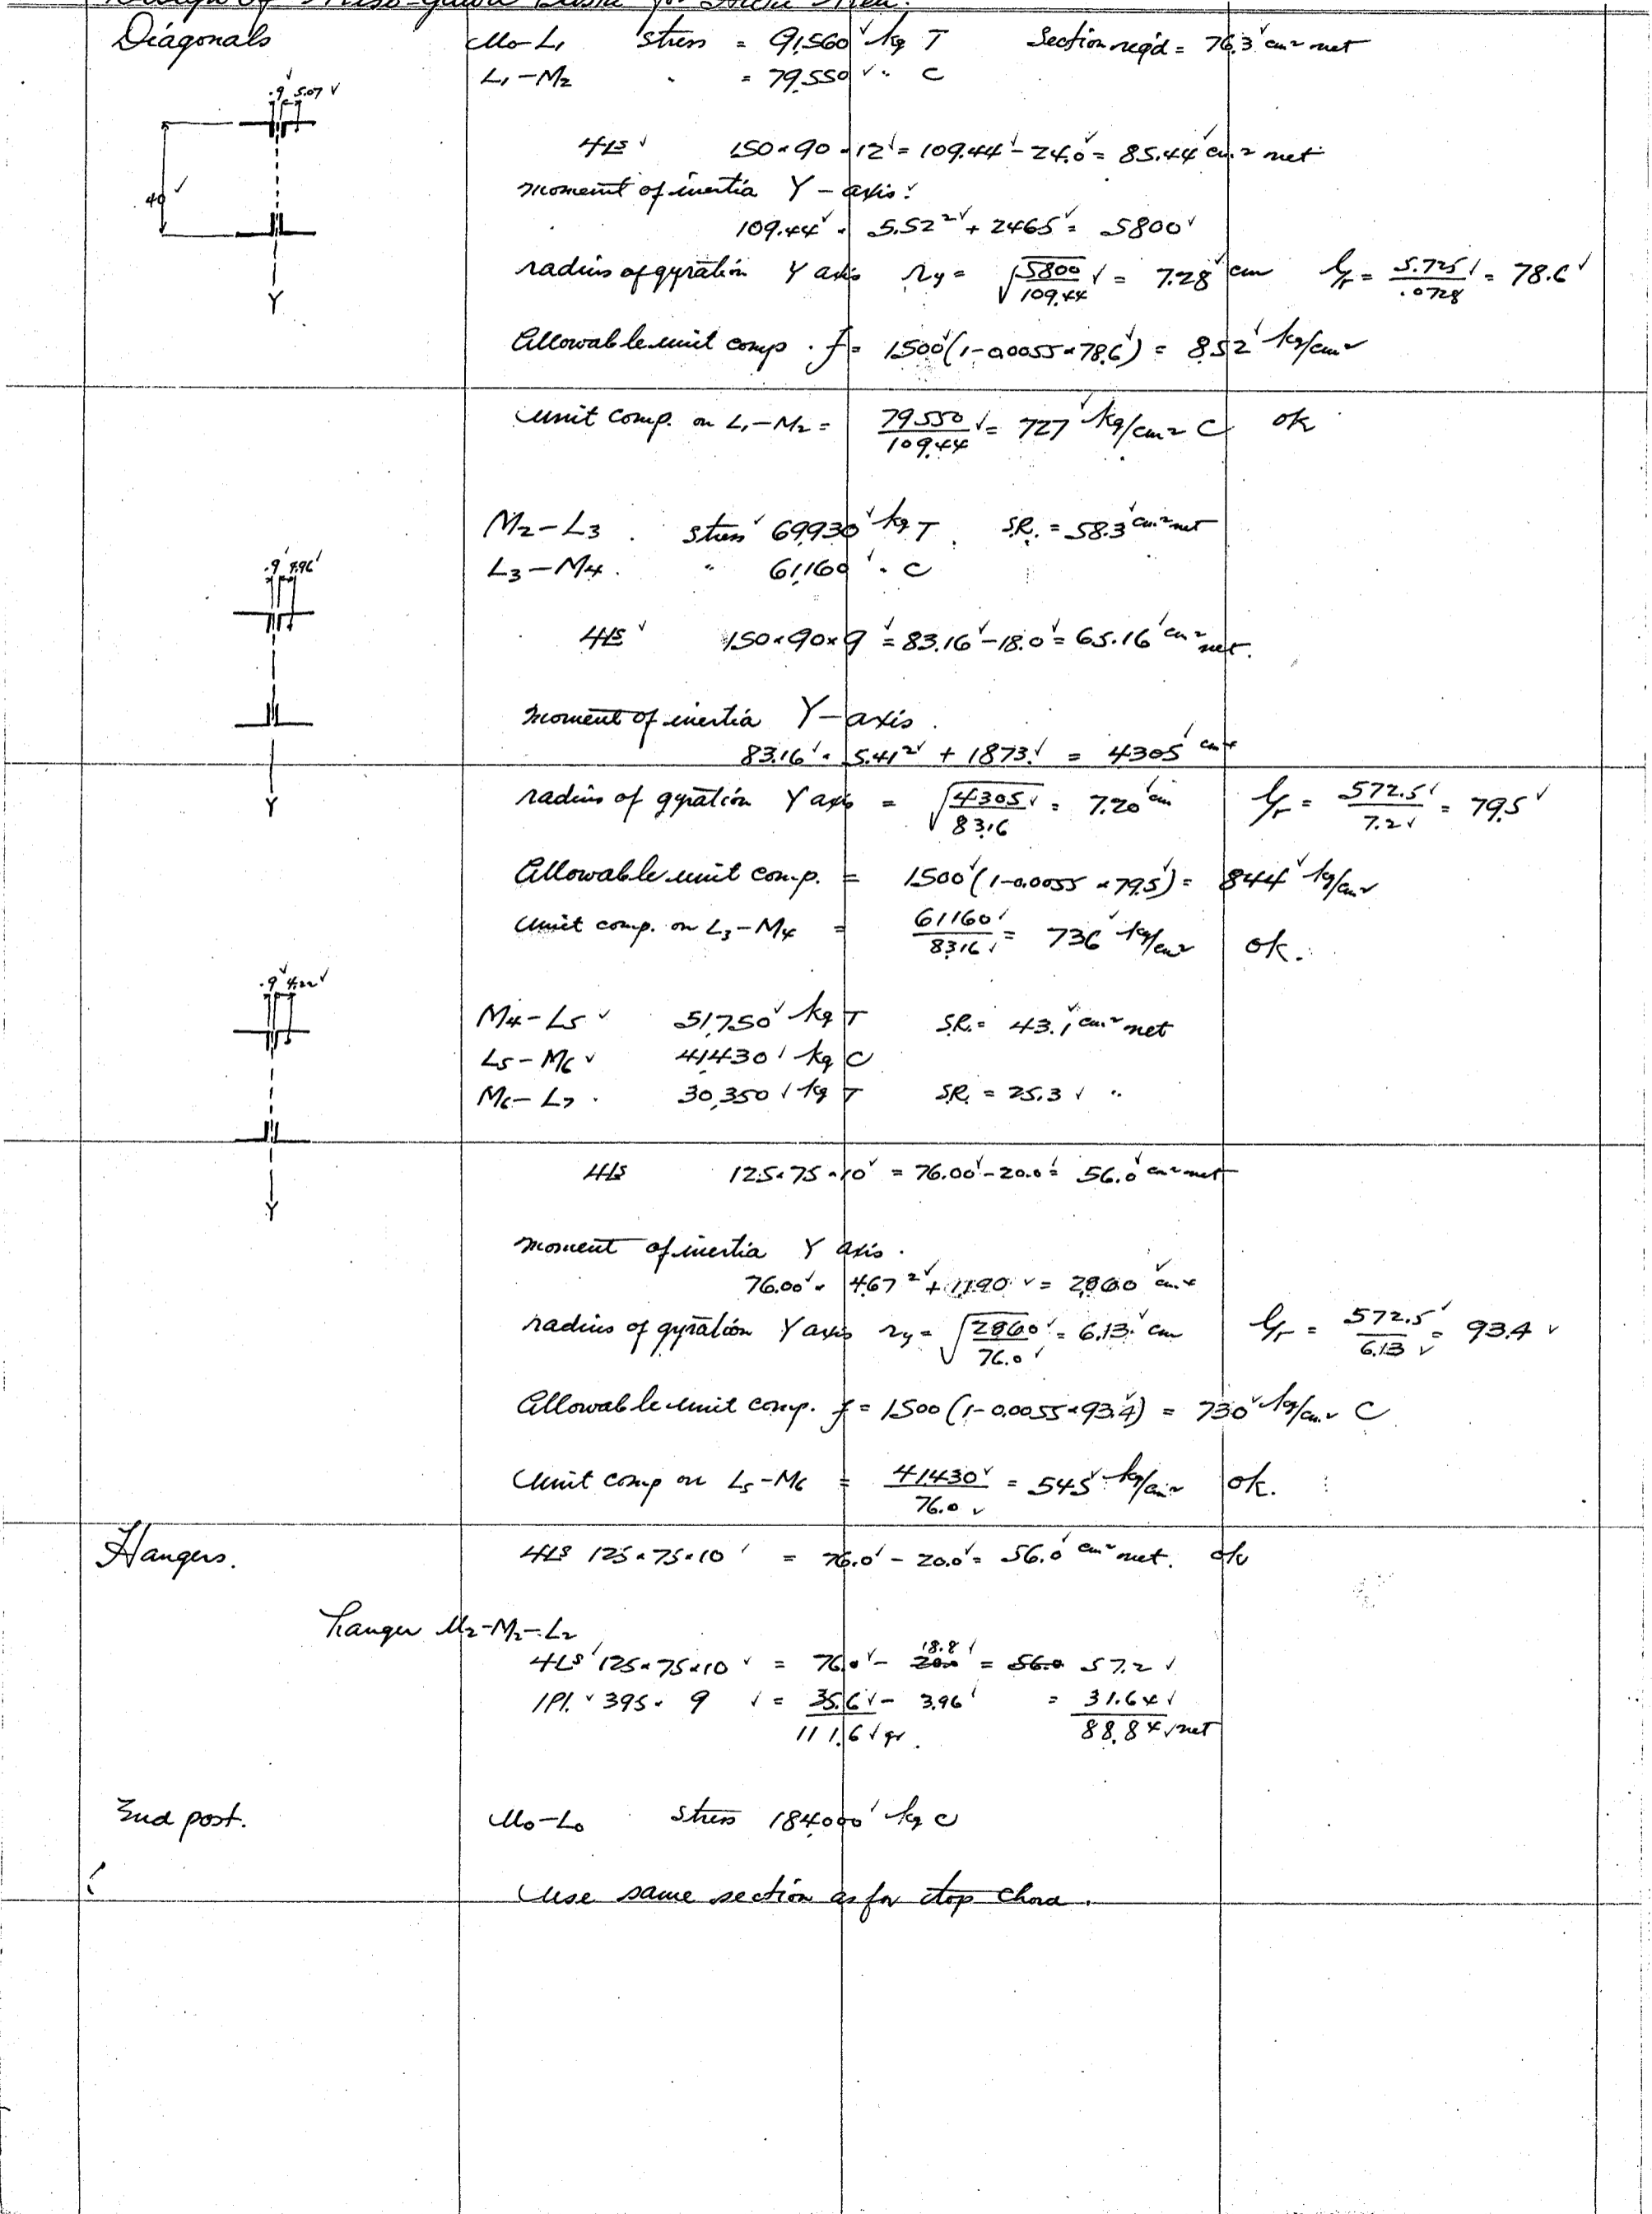 Design of Kiso-gawa for
Diagonals
U0-L1 stress = 91,560 kg T Section req'd = 76.3 cm² net
L1-M2 " = 79,550 " C
.9 5.07
40
4Ls 150×90×12 = 109.44 - 24.0 = 85.44 cm² net
moment of inertia Y-axis.
109.44 × 5.52² + 2465 = 5800
radius of gyration Y axis ry = √(5800/109.44) = 7.28 cm l/r = 5.725/.0728 = 78.6
Y
Allowable unit comp. f = 1500(1-0.0055×78.6) = 852 kg/cm²
Unit comp. on L1-M2 = 79550/109.44 = 727 kg/cm² C ok
M2-L3 stress 69,930 kg T S.R. = 58.3 cm² net
L3-M4 " 61,160 " C
.9 4.96
4Ls 150×90×9 = 83.16 - 18.0 = 65.16 cm² net.
moment of inertia Y-axis.
83.16 × 5.41² + 1873 = 4305 cm⁴
Y
radius of gyration Y axis = √(4305/83.16) = 7.20 cm l/r = 572.5/7.2 = 79.5
Allowable unit comp. = 1500(1-0.0055×79.5) = 844 kg/cm²
Unit comp. on L3-M4 = 61160/83.16 = 736 kg/cm² ok.
.9 4.22
M4-L5 51,750 kg T S.R. = 43.1 cm² net
L5-M6 41,430 kg C
M6-L7 30,350 kg T S.R. = 25.3 "
4Ls 125×75×10 = 76.00 - 20.0 = 56.0 cm² net
Y
moment of inertia Y axis.
76.00 × 4.67² + 1190 = 2860 cm⁴
radius of gyration Y axis ry = √(2860/76.0) = 6.13 cm l/r = 572.5/6.13 = 93.4
Allowable unit comp. f = 1500(1-0.0055×93.4) = 730 kg/cm² C
Unit comp on L5-M6 = 41430/76.0 = 545 kg/cm² ok.
Hangers.
4Ls 125×75×10 = 76.0 - 20.0 = 56.0 cm² net. ok
hanger U2-M2-L2
18.8
4Ls 125×75×10 = 76.0 - 20.0 = 56.0 57.2
1Pl. 395 × 9 = 35.6 - 3.96 = 31.64
111.6 gr. 88.84 net
End post.
U0-L0 stress 184,000 kg C
Use same section as for top chord.